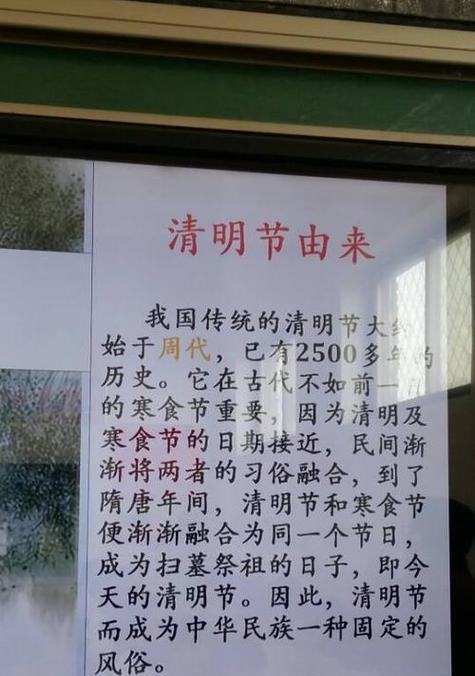 清明节由来
我国传统的清明节大约
始于周代，已有2500多年的
历史。它在古代不如前一日
的寒食节重要，因为清明及
寒食节的日期接近，民间渐
渐将两者的习俗融合，到了
隋唐年间，清明节和寒食节
便渐渐融合为同一个节日，
成为扫墓祭祖的日子，即今
天的清明节。因此，清明节
而成为中华民族一种固定的
风俗。